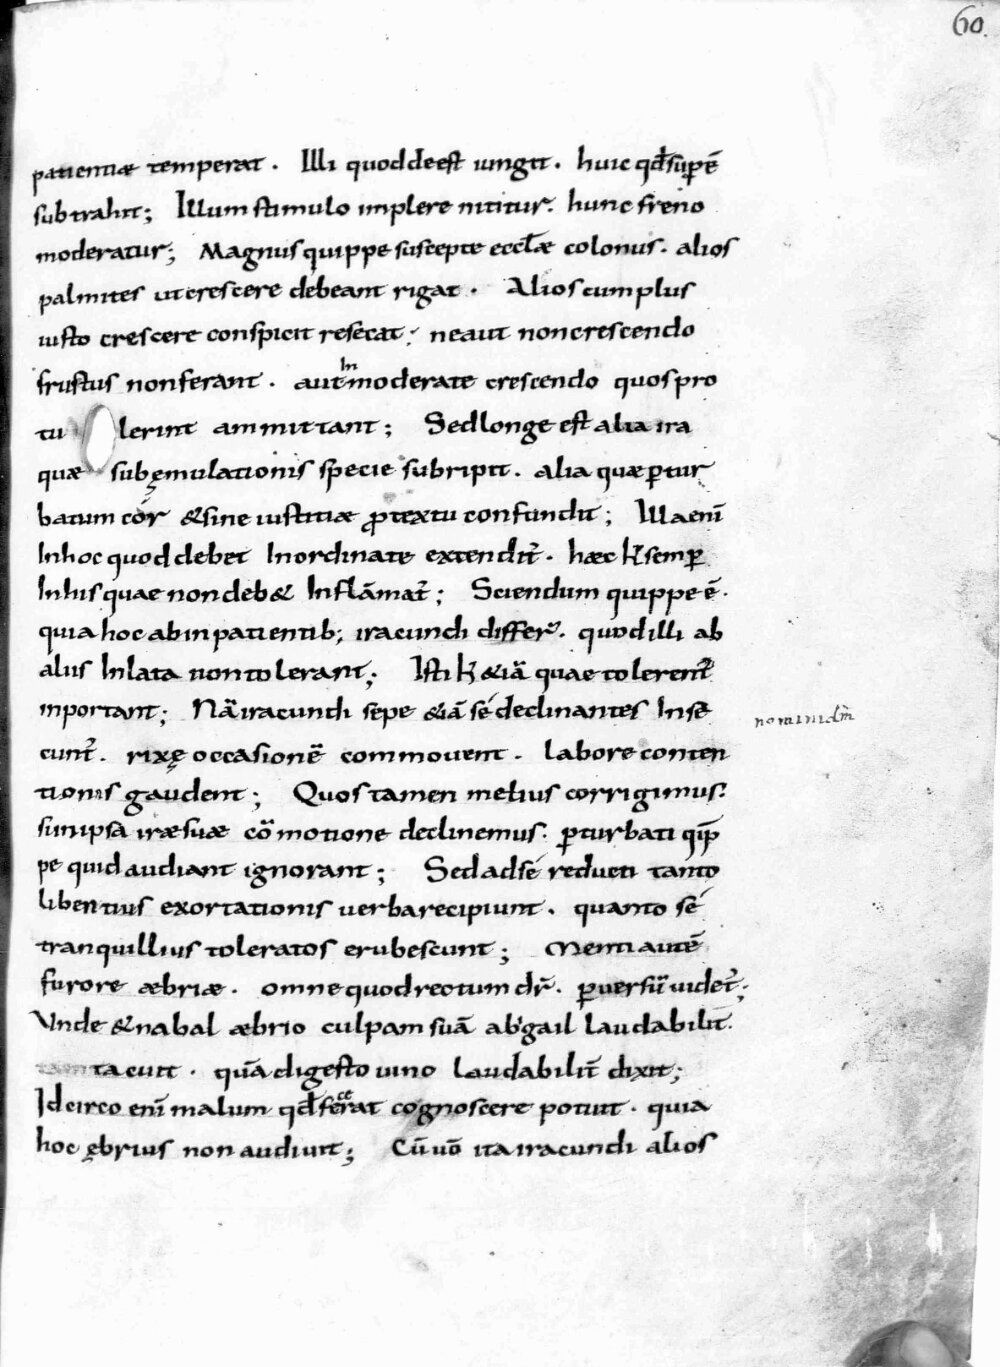 60.
patientiæ temperat. Illi quod deest iungit. huic qđ supē
subtrahit; Illum stimulo implere nititur. hunc freno
moderatur; Magnus quippe suscepte eccłæ colonus. alios
palmites ut crescere debeant rigat. Alios cum plus
iusto crescere conspicit resecat; ne aut non crescendo
fructus non ferant. aut Inmoderate crescendo quos pro
tulerint ammittant; Sed longe est alia ira
quæ sub ęmulationis specie subripit. alia quæ ꝑtur
batum cór & sine iustitiæ ꝓtextu confundit; Illa eni
In hoc quod debet Inordinate extendit̃. hæc ħ semꝑ
In his quae non deb& Inflāmat̃; Sciendum quippe ē.
quia hoc ab inpatientib; iracundi differ̃. quod illi ab
aliis Inlata non tolerant; Isti ħ &iā quae tolerent̃
inportant; Nā iracundi sepe &iā sé declinantes Inse
cunt̃. rixę occasionē commovent. labore conten
tionis gaudent; Quos tamen melius corrigimus.
si in ipsa iræ suæ cōmotione declinemus. ꝑturbati qip
pe quid audiant ignorant; Sed ad sé reducti tanto
libentius exortationis verba recipiunt. quanto sé
tranquillius toleratos erubescunt; Menti autē
furore æbriæ. omne quod rectum dr̃. ꝑversū videt̃;
Unde & nabal æbrio culpam suā abigail laudabilit̃.
tacuit. quā digesto vino laudabilit̃ dixit;
Idcirco eni malum qđ fecerat cognoscere potuit. quia
hoc ębrius non audivit; Cū vō ita iracundi alios